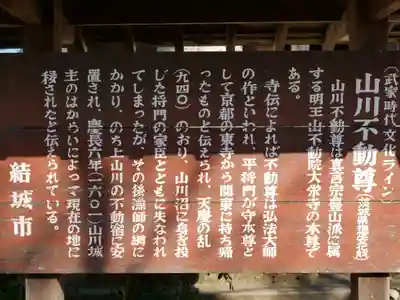 (武家時代文化ライン)
山川不動尊
山川不動尊は真言宗豊山派に属
する明王山不動院大栄寺の本尊で
ある。
寺伝によれば不動尊は弘法大師
の作といわれ、平将門が守本尊と
して京都の東寺から関東に持ち帰
ったものと伝えられ、天慶の乱
(九四〇)のおり、山川沼に身を投
じた将門の家臣とともに失なわれ
てしまったが、その後漁師の網に
かかり、のち上山川の不動宿に安
置され、慶長六年(一六〇一)山川城
主のはからいによって現在の地に
移されたと伝えられている。
結城市